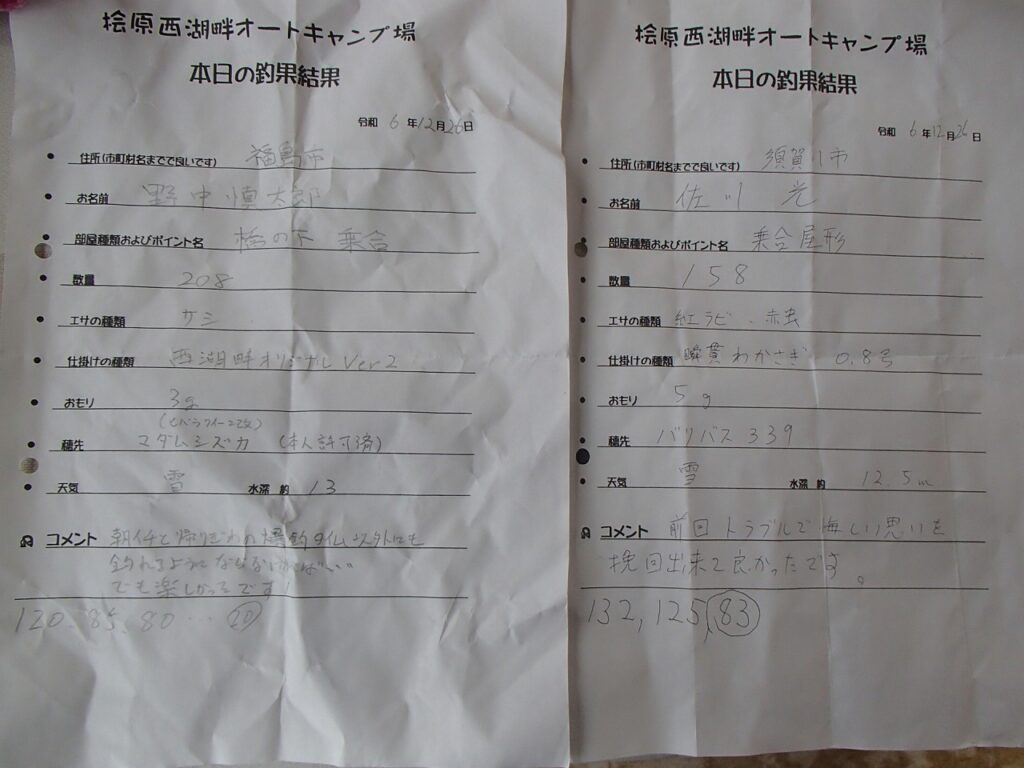 桧原西湖畔オートキャンプ場
本日の釣果結果
令和 6年12月26日
住所(市町村名までで良いです) 福島市
お名前 野中慎太郎
部屋種類およびポイント名 橋の下 乗合
数量 208
エサの種類 サシ
仕掛けの種類 西湖畔オリジナル Ver2
おもり 3g
穂先 マダムシズカ (本人許可済)
天気 雪 水深 約 13
コメント 朝イチと帰りぎわの爆釣タイム以外にも
釣れるように
でも楽しかったです!
120、85、80… 20
桧原西湖畔オートキャンプ場
本日の釣果結果
令和 6年12月26日
住所(市町村名までで良いです) 須賀川市
お名前 佐川 光
部屋種類およびポイント名 乗合屋形
数量 158
エサの種類 紅ラビ、赤虫
仕掛けの種類 瞬貫わかさぎ 0.8号
おもり 5g
穂先 バリバス 339
天気 雪 水深 約 12.5m
コメント 前回トラブルで悔しい思いを
挽回出来て良かったです。
132, 125, 83